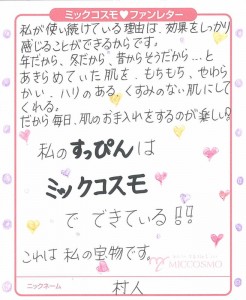 ミックコスモ♥ファンレター
私が使い続けている理由は、効果をしっかり
感じることができるからです。
年だから、冬だから、昔からそうだから…と
あきらめていた肌を、もちもち、やわら
かい、ハリのある、くすみのない肌にして
くれる。
だから毎日、肌のお手入れをするのが楽しい!
私のすっぴんは
ミックコスモ
で できている!!
これは 私の宝物です。
MICCOSMO
ニックネーム
村人